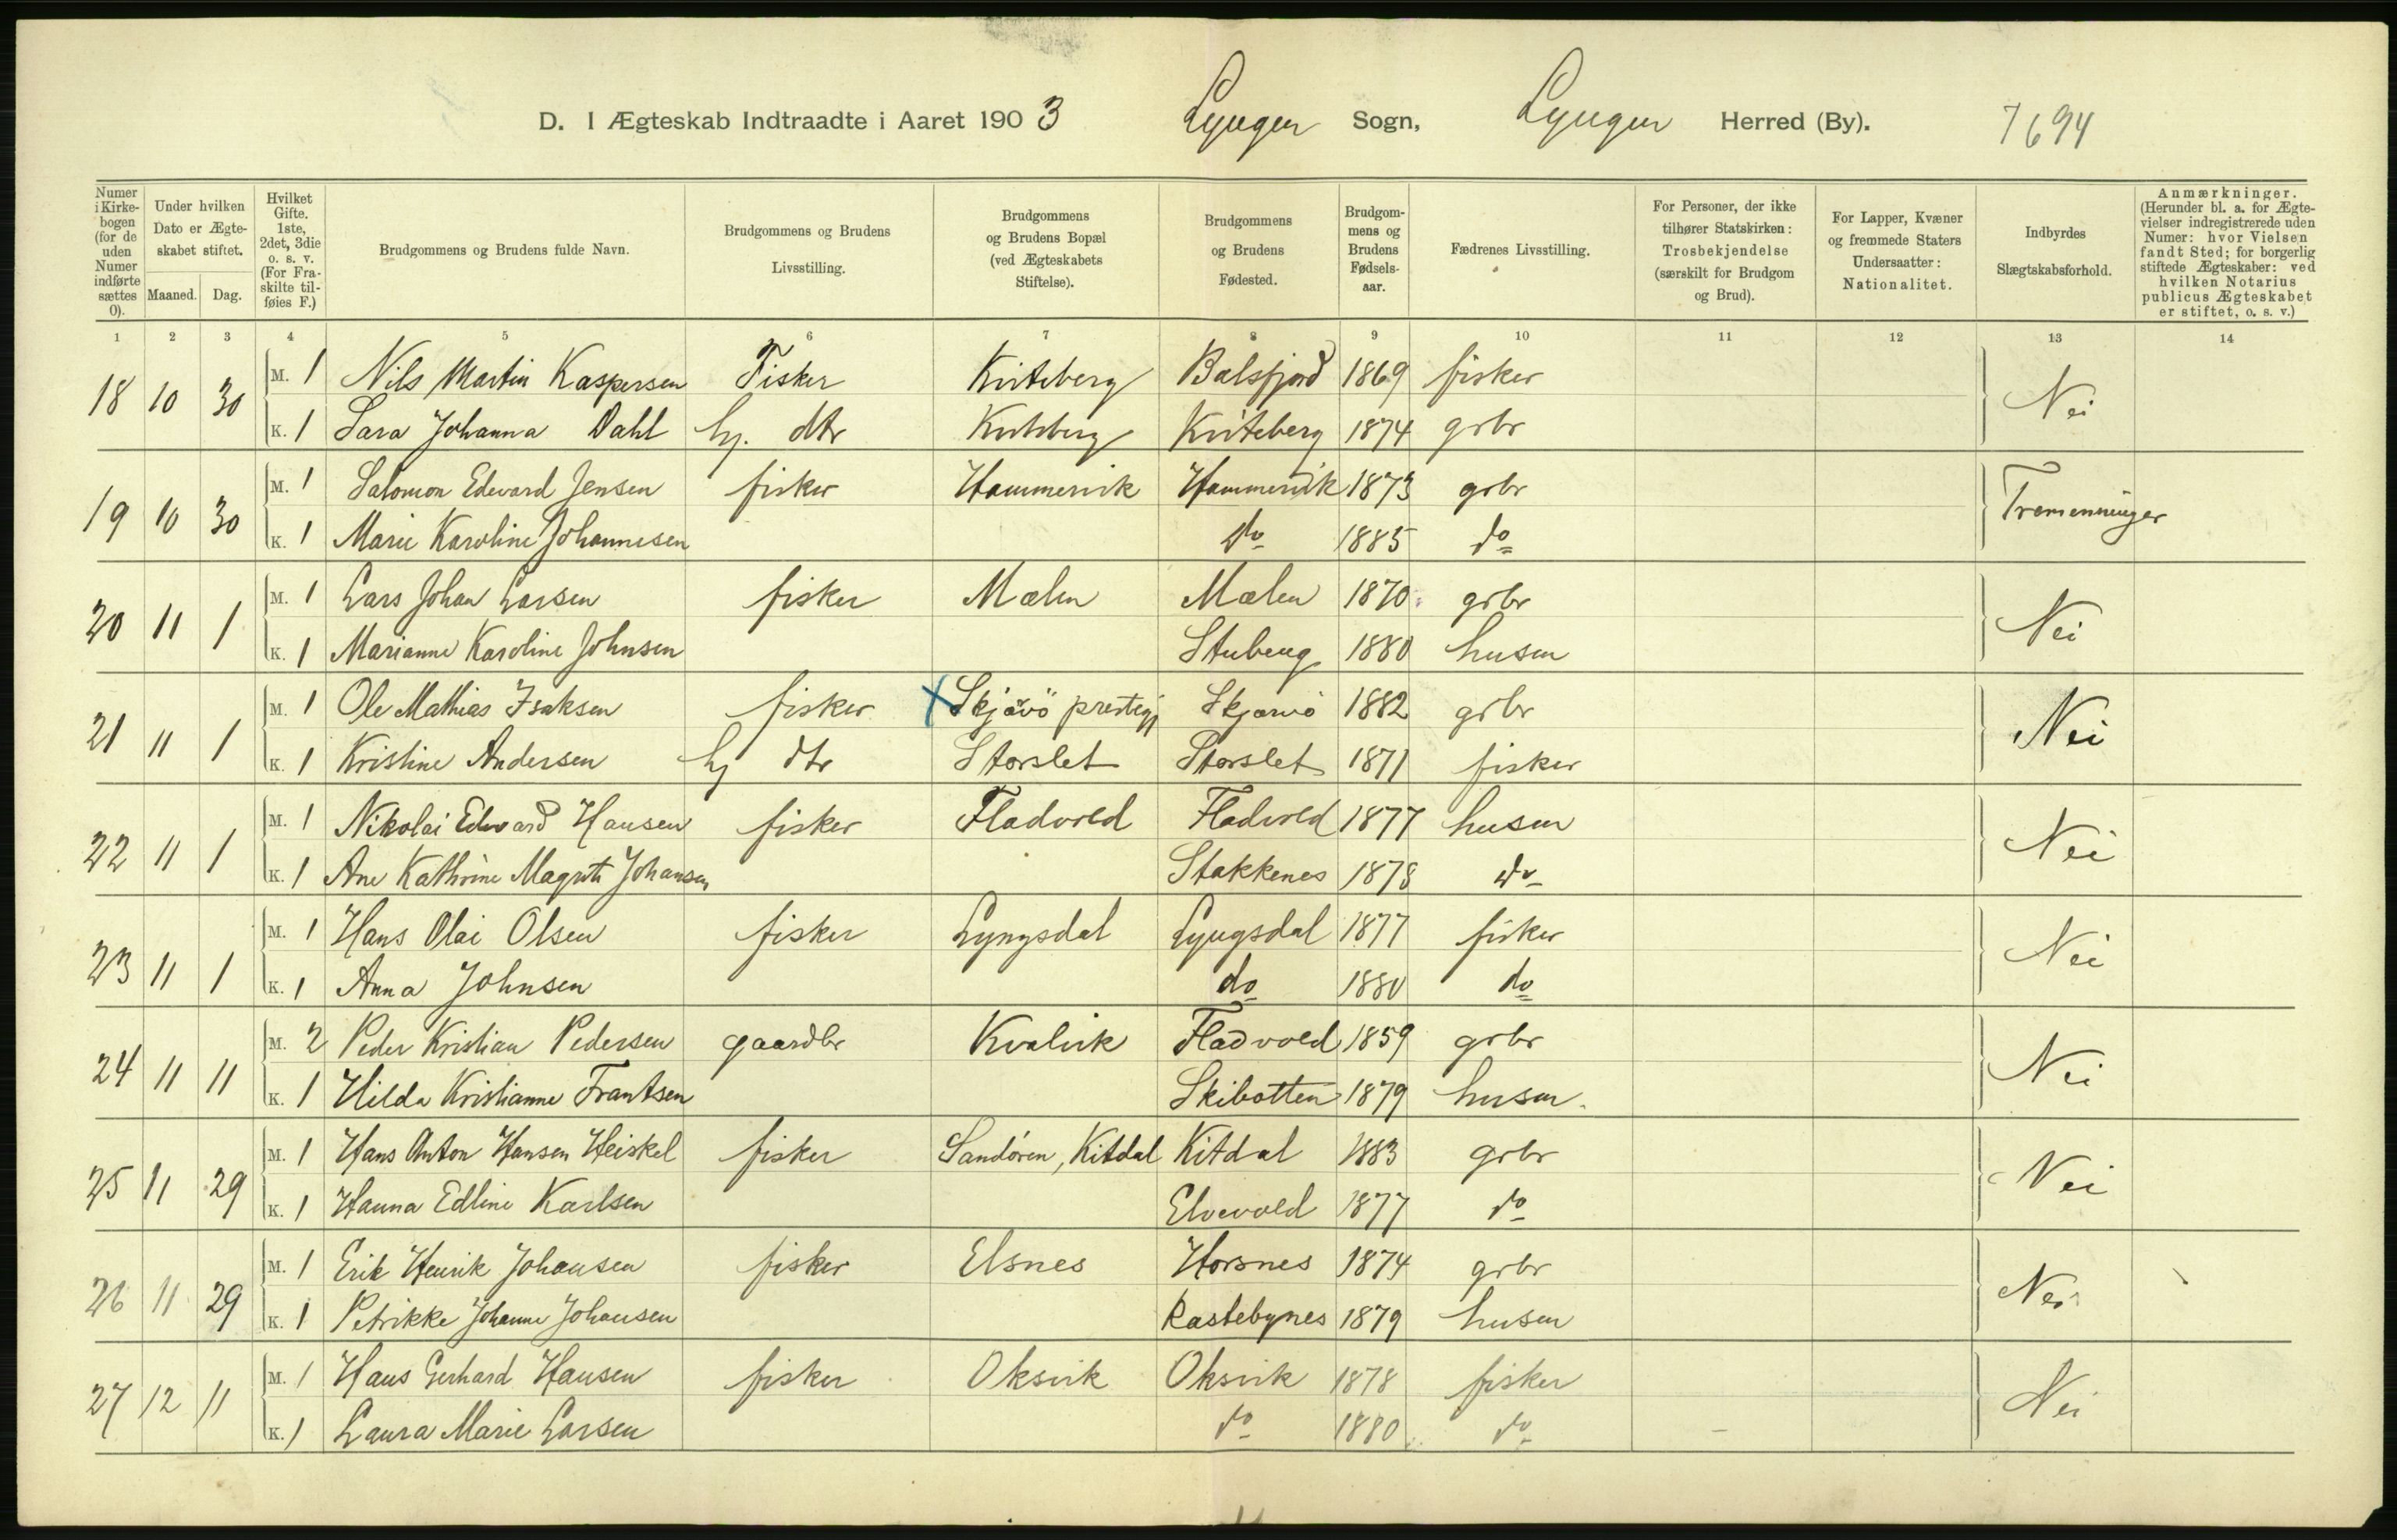 D. I Ægteskab Indtraadte i Aaret 1903 Lyngen Sogn, Lyngen Herred (By). 7694
Numer i Kirkebogen (for de uden Numer indførte sættes 0). | Under hvilken Dato er Ægteskabet stiftet. Maaned. Dag. | Hvilket Gifte. 1ste, 2det, 3die o. s. v. (For Fraskilte tilføies F.) | Brudgommens og Brudens fulde Navn. | Brudgommens og Brudens Livsstilling. | Brudgommens og Brudens Bopæl (ved Ægteskabets Stiftelse). | Brudgommens og Brudens Fødested. | Brudgommens og Brudens Fødselsaar. | Fædrenes Livsstilling. | For Personer, der ikke tilhører Statskirken: Trosbekjendelse (særskilt for Brudgom og Brud). | For Lapper, Kvæner og fremmede Staters Undersaatter: Nationalitet. | Indbyrdes Slægtskabsforhold. | Anmærkninger. (Herunder bl. a. for Ægtevielser indregistrerede uden Numer: hvor Vielsen fandt Sted; for borgerlig stiftede Ægteskaber: ved hvilken Notarius publicus Ægteskabet er stiftet, o. s. v.)
1 2 3 4 5 6 7 8 9 10 11 12 13 14
18 10 30 M. 1 Nils Martin Kaspersen Fisker Kviteberg Balsfjord 1869 fisker Nei
K. 1 Sara Johanna Dahl hj. dtr Kviteberg Kviteberg 1874 grbr
19 10 30 M. 1 Salomon Edevard Jensen fisker Hammervik Hammervik 1873 grbr Tremenninger
K. 1 Marie Karoline Johannesen do 1885 do
20 11 1 M. 1 Lars Johan Larsen fisker Mælen Mælen 1870 grbr Nei
K. 1 Marianne Karoline Johnsen Stubeng 1880 husm
21 11 1 M. 1 Ole Mathias Isaksen fisker X Skjævö prestegj Skjærvö 1882 grbr Nei
K. 1 Kristine Andersen hj dtr Storslet Storslet 1871 fisker
22 11 1 M. 1 Nikolai Edvard Hansen fisker Fladvold Fladvold 1877 husm Nei
K. 1 Ane Kathrine Magrete Johansen Stakkenes 1878 do
23 11 1 M. 1 Hans Olai Olsen fisker Lyngsdal Lyngsdal 1877 fisker Nei
K. 1 Anna Johnsen do 1880 do
24 11 11 M. 2 Peder Kristian Pedersen gaardbr Kvalvik Fladvold 1859 grbr Nei
K. 1 Hilda Kristianne Frantsen Skibotten 1879 husm.
25 11 29 M. 1 Hans Anton Hansen Heiskel fisker Sandören, Kitdal Kitdal 1883 grbr Nei
K. 1 Hanna Edline Karlsen Elvevold 1877 do
26 11 29 M. 1 Erik Henrik Johansen fisker Elsnes Horsnes 1874 grbr Nei
K. 1 Petrikke Johanne Johansen Rastebynes 1879 husm
27 12 11 M. 1 Hans Gerhard Hansen fisker Oksvik Oksvik 1878 fisker Nei
K. 1 Laura Marie Larsen do 1880 do